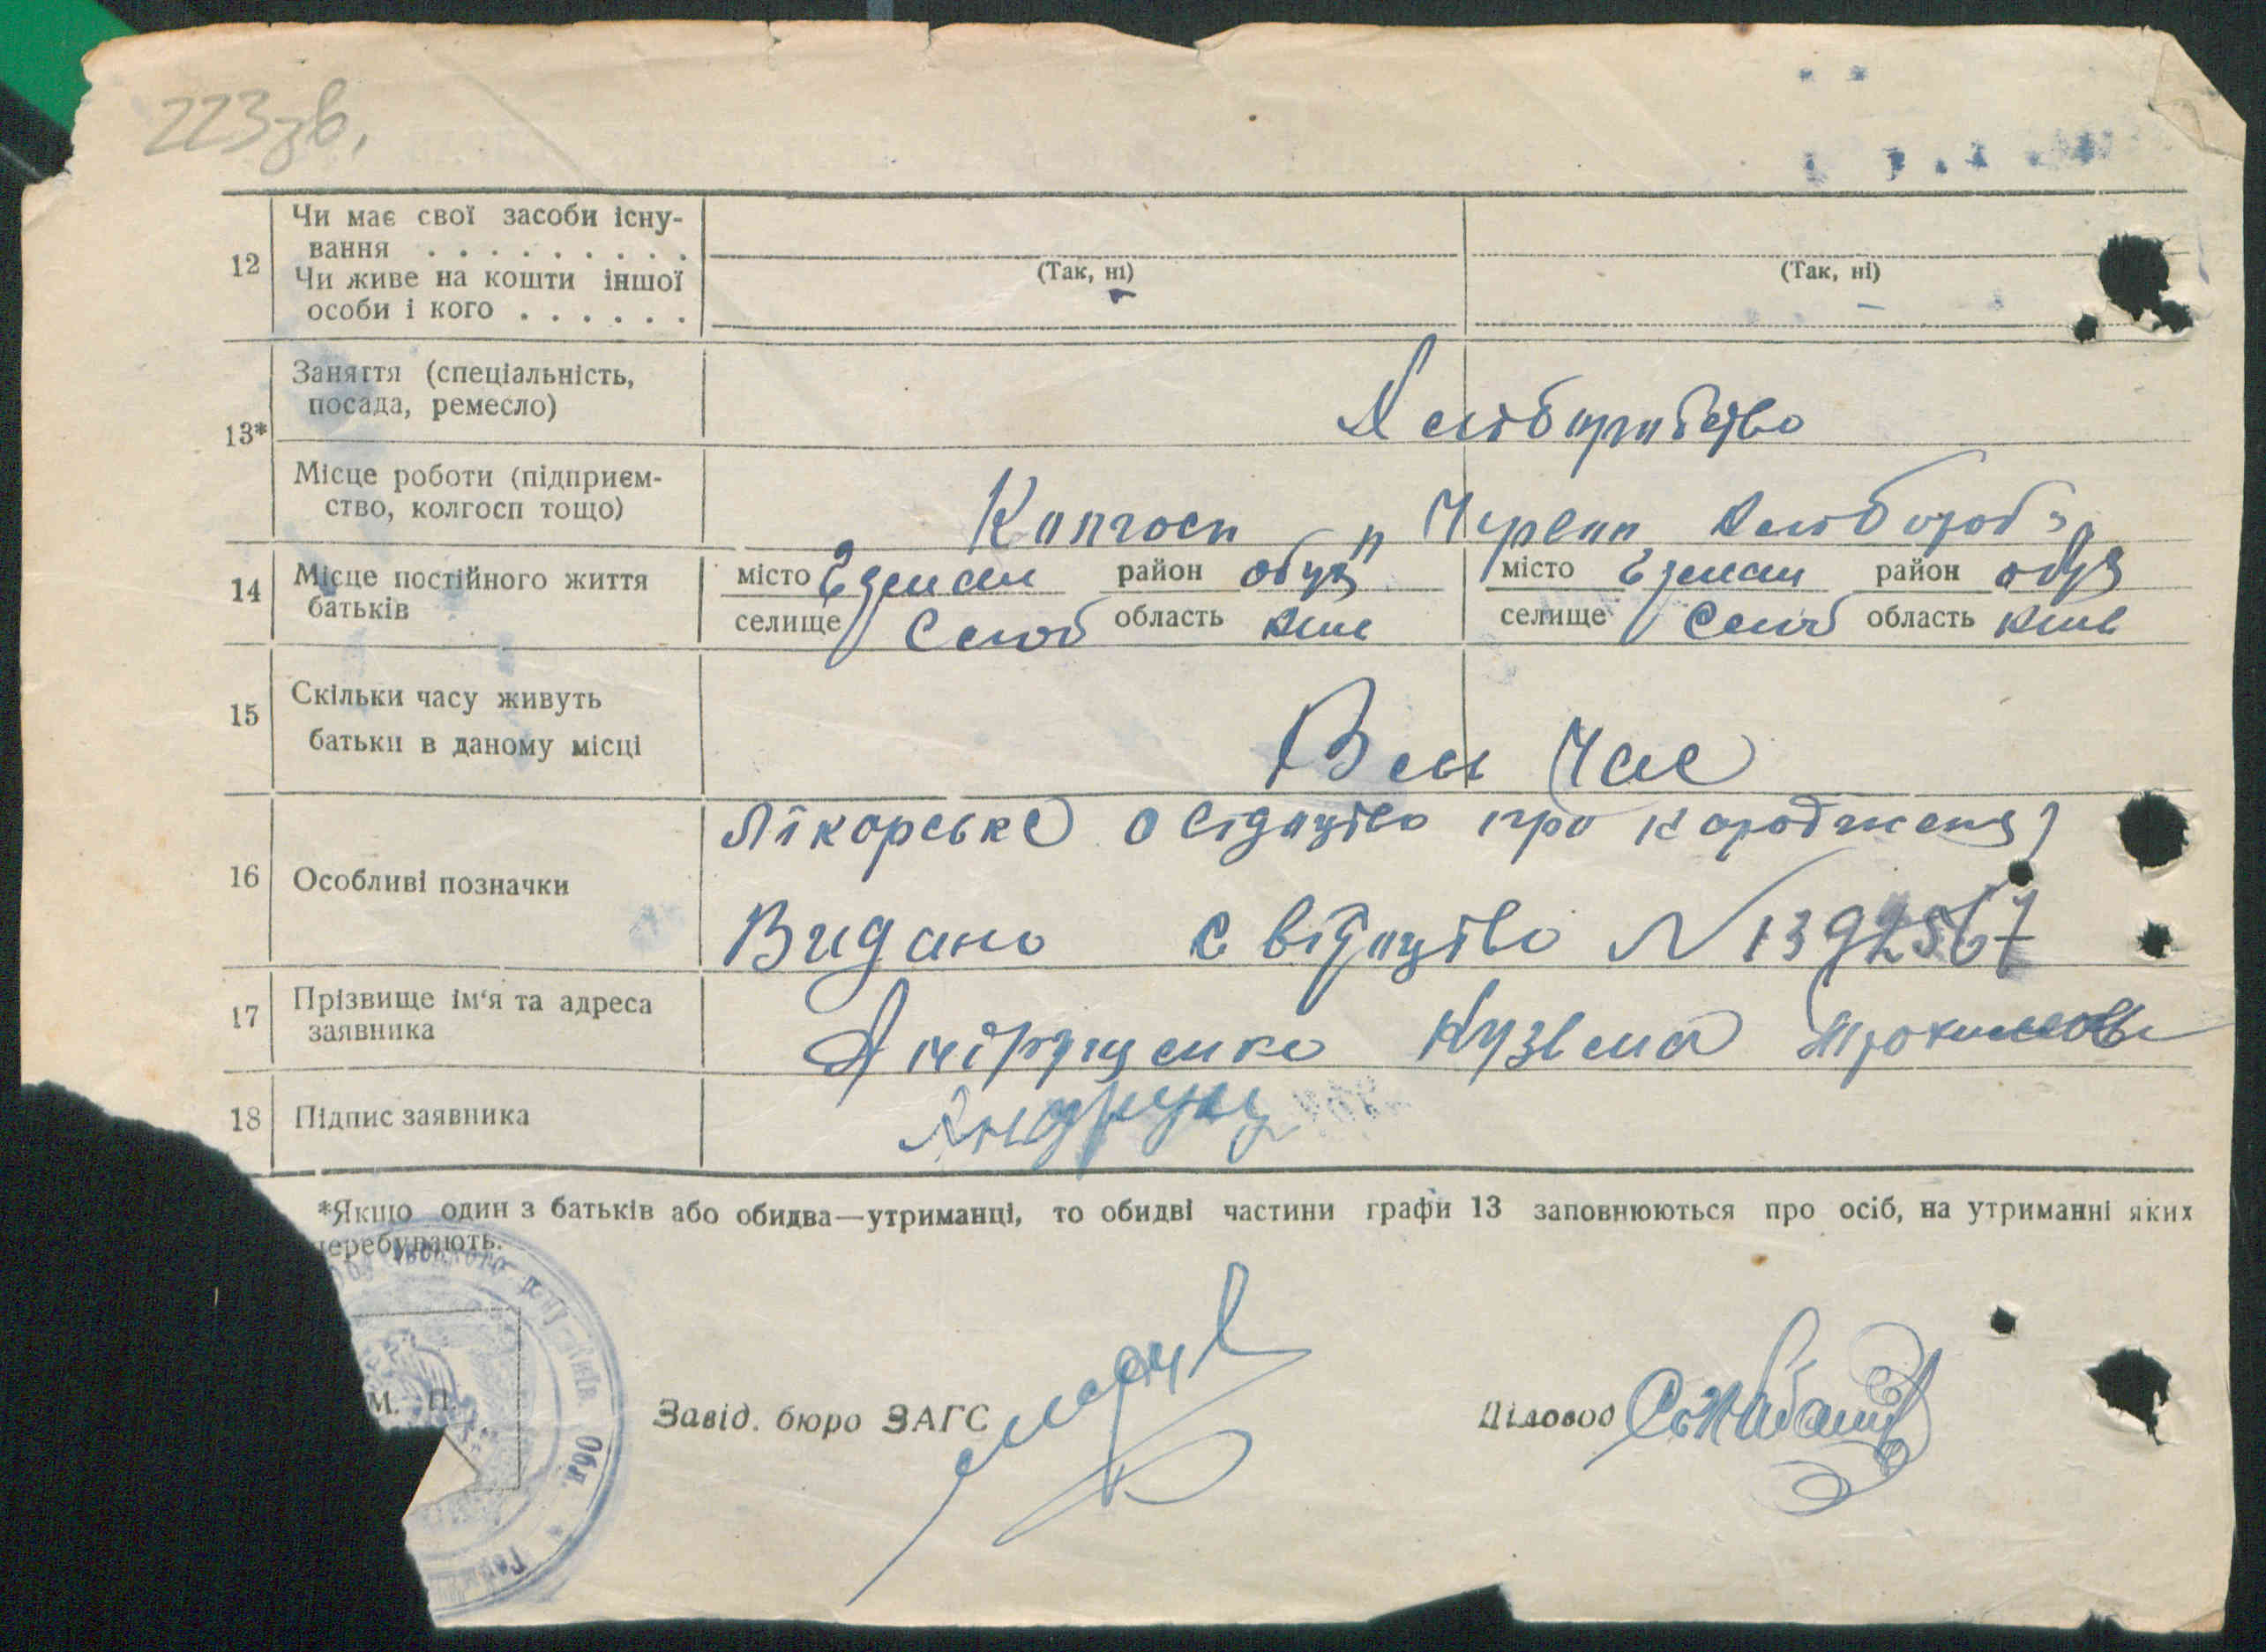 223зв.
12
Чи має свої засоби існу-
вання . . . . . . . . .
(Так, ні)
(Так, ні)
Чи живе на кошти іншої
особи і кого . . . . . .
13*
Заняття (спеціальність,
посада, ремесло)
Хліборобство
Місце роботи (підприєм-
ство, колгосп тощо)
Колгосп „ Червон Хлібороб"
14
Місце постійного життя
батьків
місто район обух місто район обух
селище Слоб область Київ селище Слоб область Київ
15
Скільки часу живуть
батьки в даному місці
Весь Час
16
Особливі позначки
Лікарське про народження
Видано свідоцтво N 1392567
17
Прізвище ім'я та адреса
заявника
Андрущенко Кузьма Трохимов
18
Підпис заявника
Андрущ
*Якщо один з батьків або обидва—утриманці, то обидві частини графи 13 заповнюються про осіб, на утриманні яких
перебувають.
М. П.
Завід. бюро ЗАГС
Діловод
Обл.